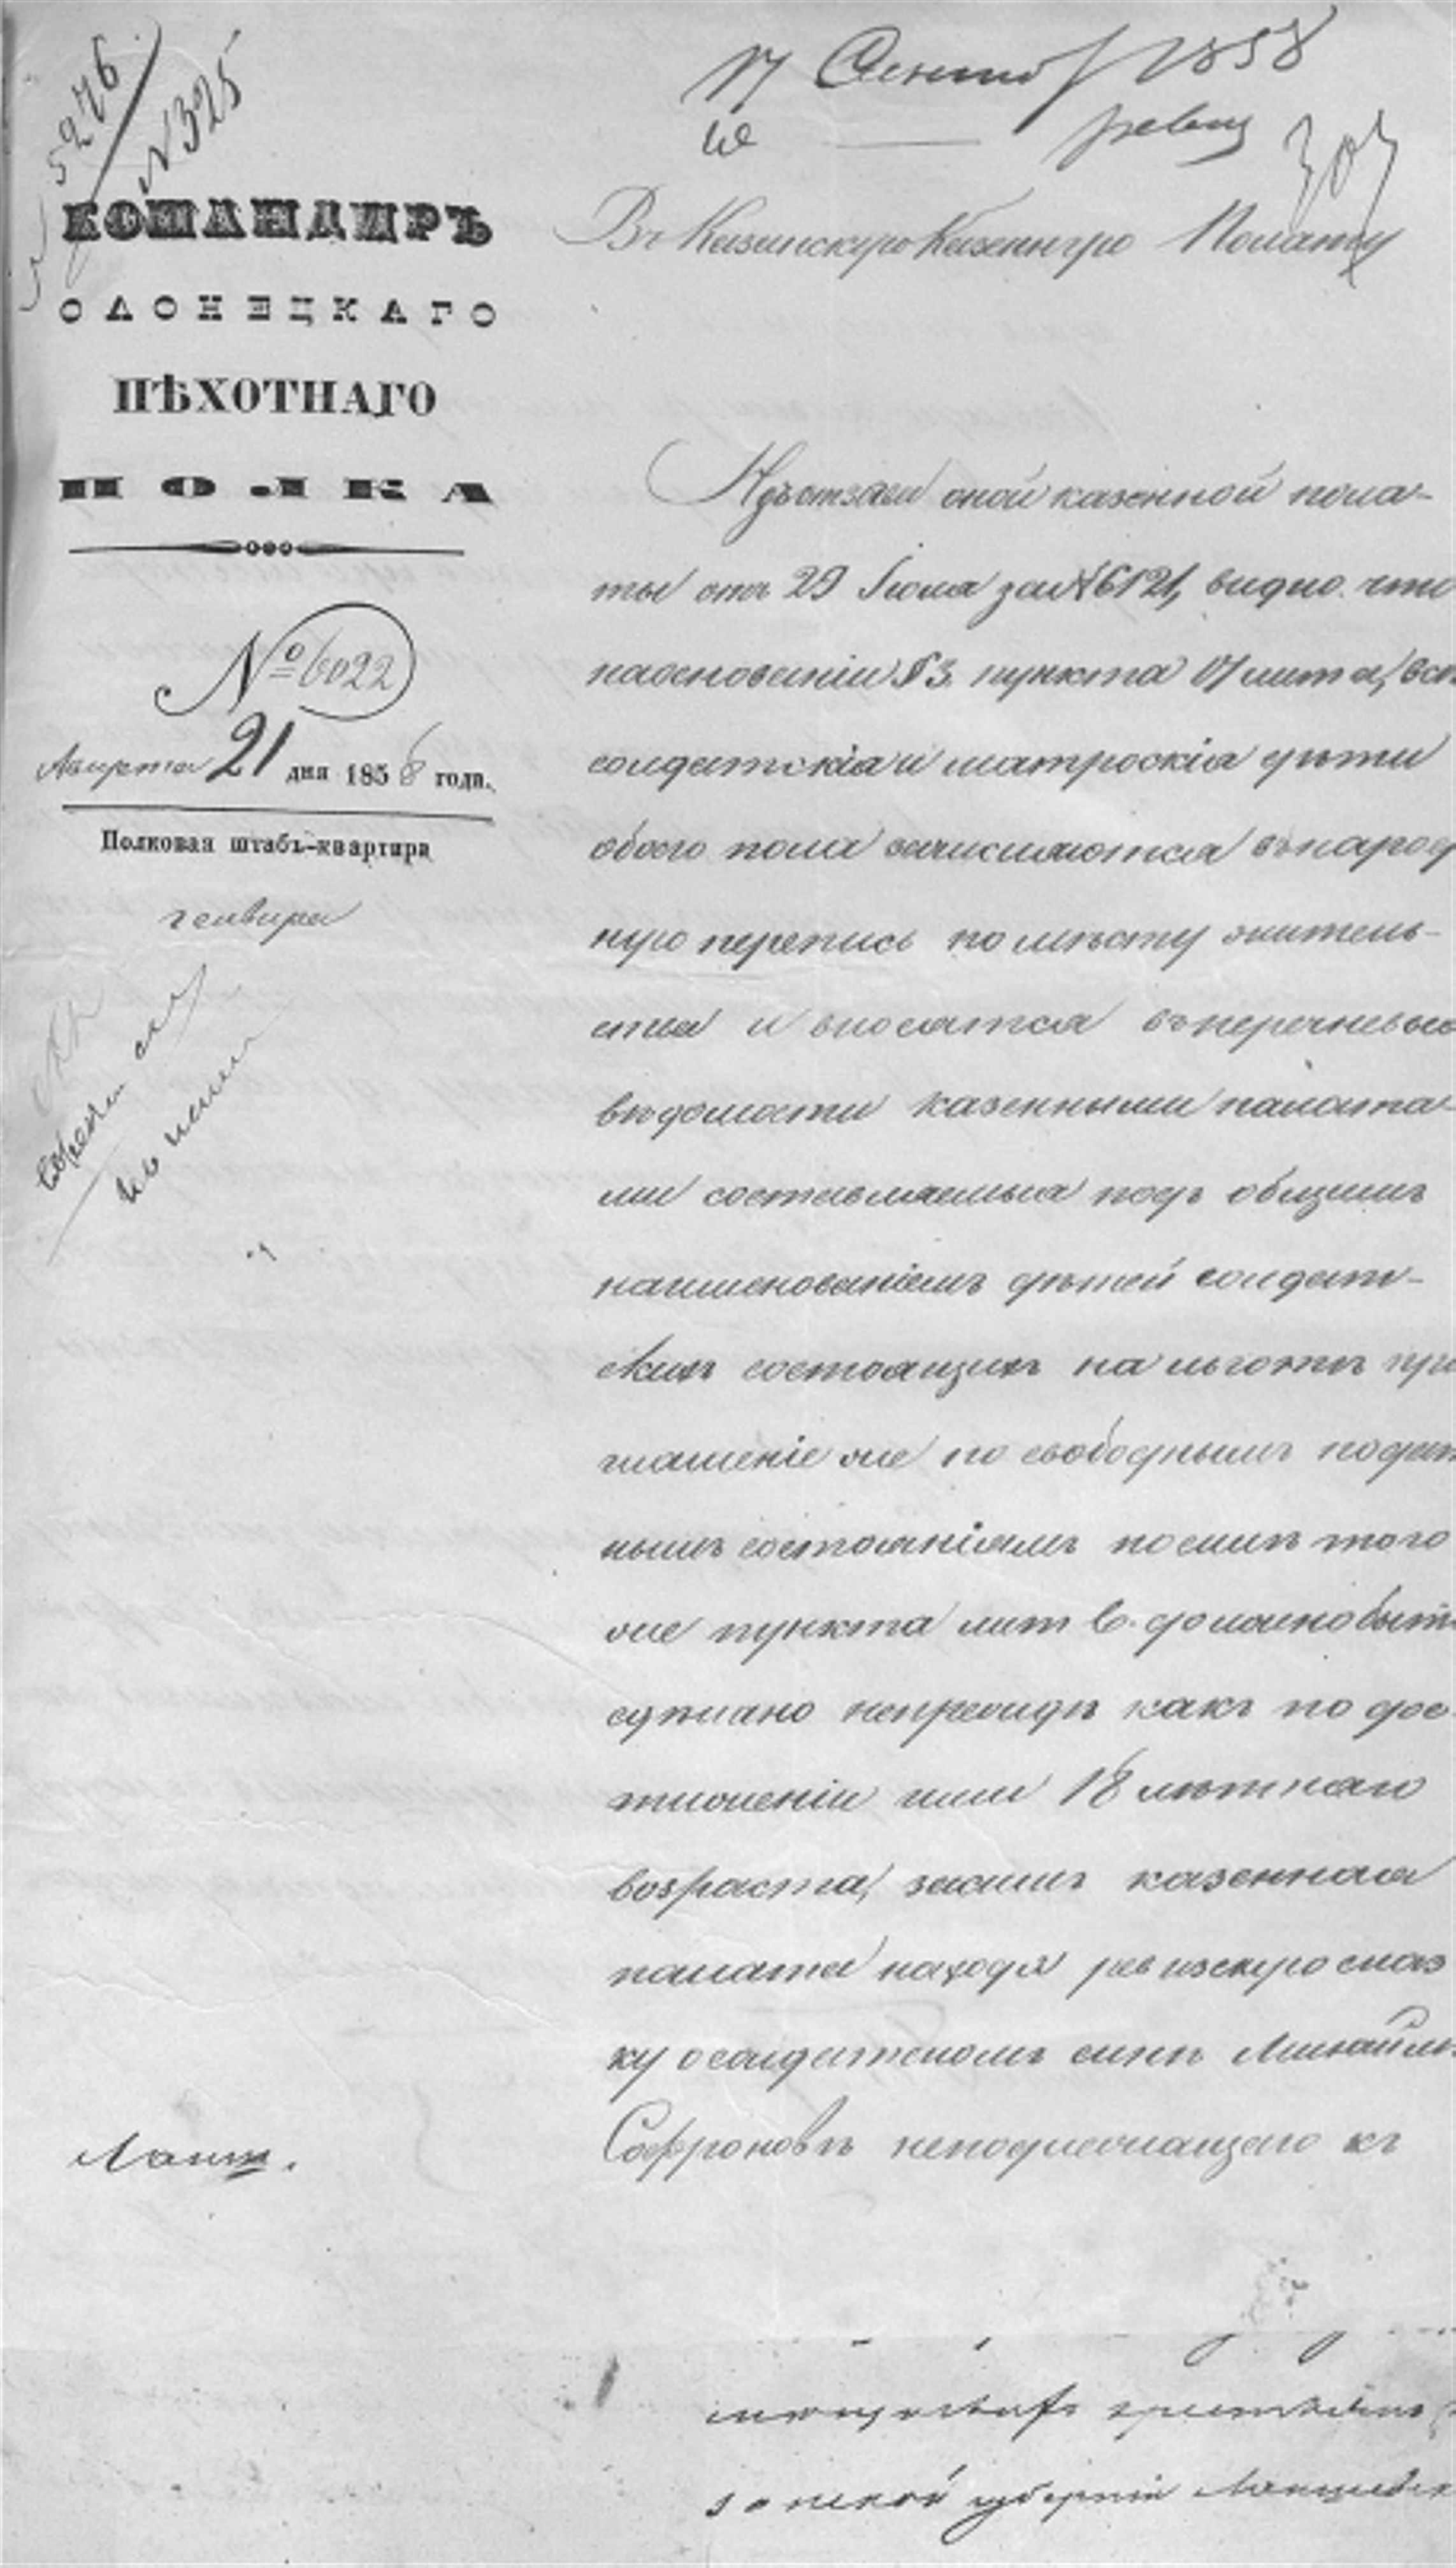 5276
N 325
17 Сентяб 1858
307
КОМАНДИРЪ
ОЛОНЕЦКАГО
ПѢХОТНАГО
ПОЛКА
№ 6022
Августа 21 дня 1858 года.
Полковая штабъ-квартира
Въ Казанскую Казенную Полату
Изъ отзыва оной казенной пола-
ты отъ 29 Іюля за № 6121, видно что
на основаніи § 3. пункта лит а, вс
солдатскія и матроскія дѣти
обоего пола зачисляются въ народ
ную перепись по мѣсту житель-
ства и вносятся въ перечневые
вѣдомости казенными палата
ми составляемыя подъ общимъ
наименованіемъ дѣтей солдат-
скихъ состоящихъ на льготѣ при
глашеніе же по свободнымъ подат
нымъ состояніямъ по силѣ того
же пункта лит в. должно быть
сдѣлано непрежде какъ по дос
тиженіи ими 18 лѣтняго
возраста, засимъ казенная
палата находя ревизскую сказ
ку о солдатскомъ сынѣ Михайлѣ
Софроновѣ неподлежащею къ
Лаиш.
занской губерніи Лаишевск